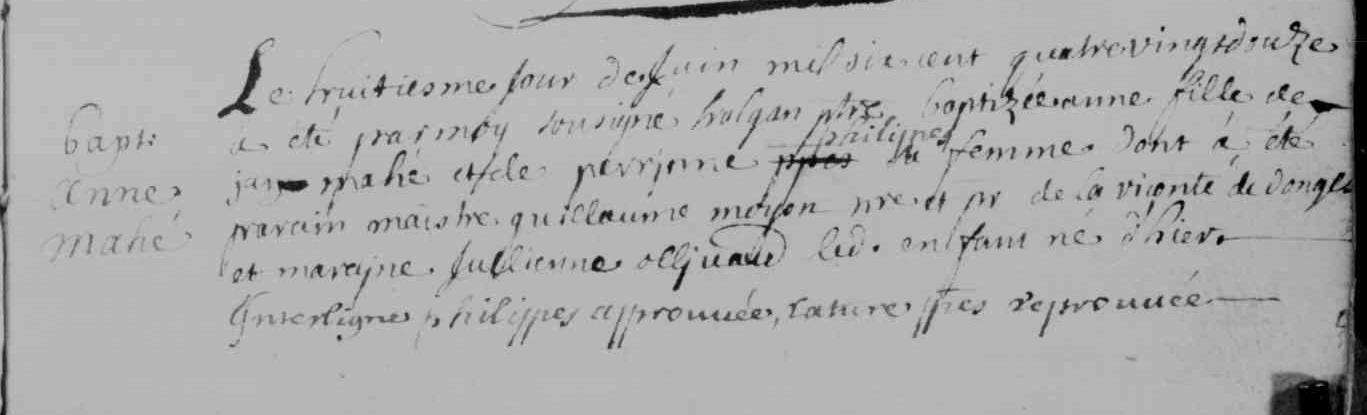 Le huitiesme jour de Juin mil six cent quatre vingt douze
bapt: a été par moy sousigné halgan ptre baptizée anne fille de
Anne jan mahé et de perrjnne ppes philippes sa femme dont à été
mahé parain maistre guillaume moyon nre et pr de la viconté de donges
et marajne Jullienne olljuaud led. enfant né d'hier
Interligne philippes approuuée, rature ppes reprouuée